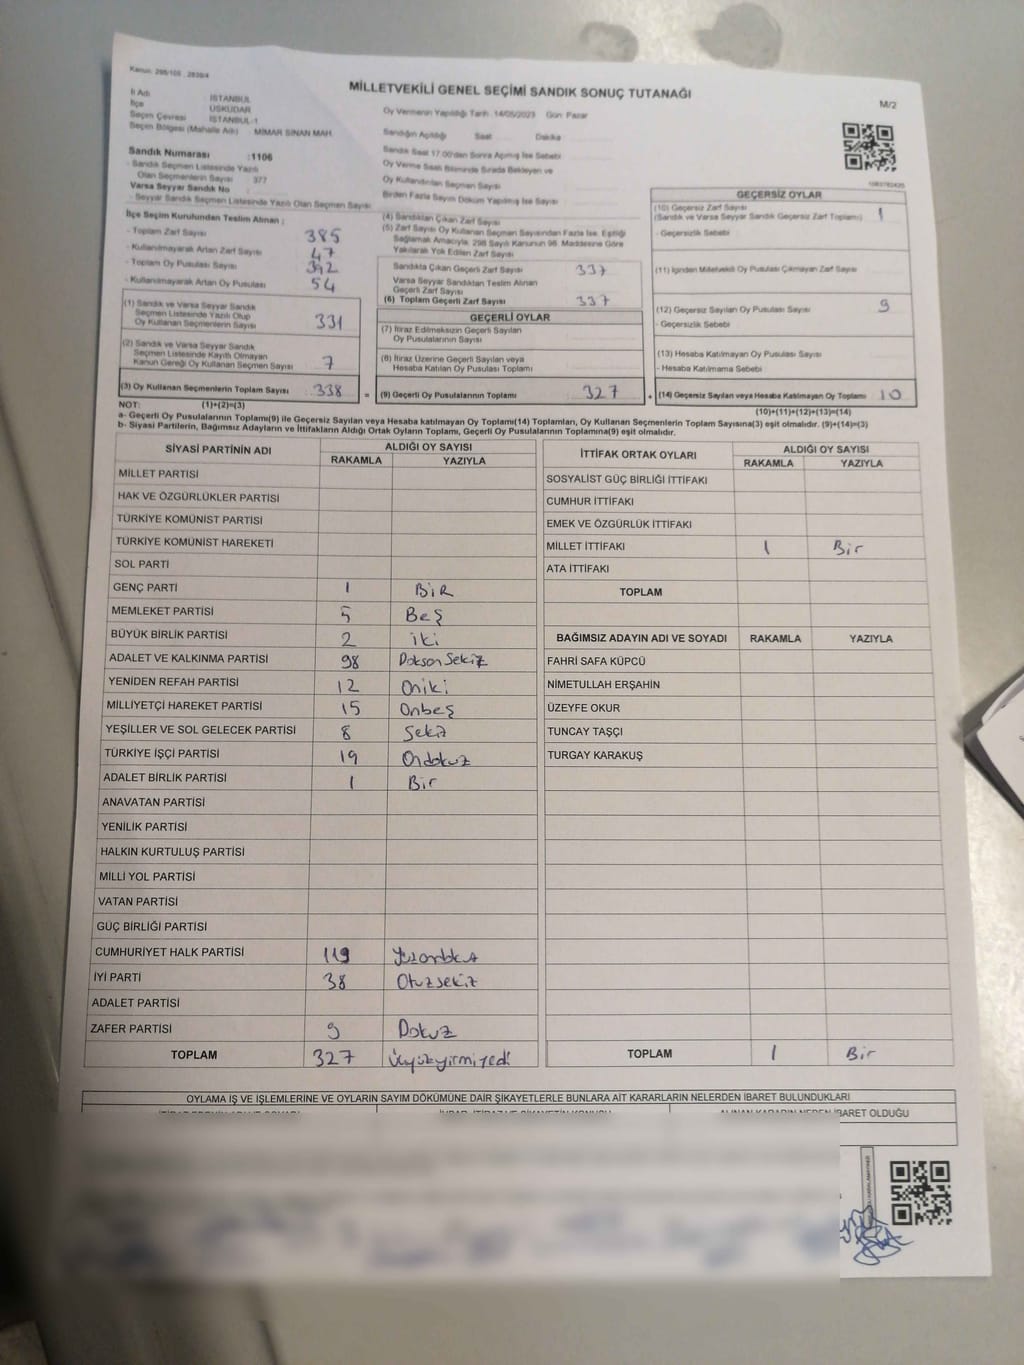 Kanun: 298/105 , 2839/4
MİLLETVEKİLİ GENEL SEÇİMİ SANDIK SONUÇ TUTANAĞI
M/2
İl Adı : İSTANBUL
İlçe : ÜSKÜDAR
Seçim Çevresi : İSTANBUL-1
Seçim Bölgesi (Mahalle Adı) : MİMAR SİNAN MAH.
Oy Vermenin Yapıldığı Tarih: 14/05/2023 Gün: Pazar
Sandığın Açıldığı Saat Dakika
Sandık Saat 17.00'den Sonra Açılmış İse Sebebi
Oy Verme Saati Bitiminde Sırada Bekleyen ve
Oy Kullandırılan Seçmen Sayısı
Birden Fazla Sayım Döküm Yapılmış İse Sayısı
Sandık Numarası :1106
- Sandık Seçmen Listesinde Yazılı
Olan Seçmenlerin Sayısı : 377
Varsa Seyyar Sandık No
- Seyyar Sandık Seçmen Listesinde Yazılı Olan Seçmen Sayısı
İlçe Seçim Kurulundan Teslim Alınan ;
- Toplam Zarf Sayısı 385
- Kullanılmayarak Artan Zarf Sayısı 47
- Toplam Oy Pusulası Sayısı 392
- Kullanılmayarak Artan Oy Pusulası 54
(1) Sandık ve Varsa Seyyar Sandık
Seçmen Listesinde Yazılı Olup
Oy Kullanan Seçmenlerin Sayısı 331
(2) Sandık ve Varsa Seyyar Sandık
Seçmen Listesinde Kayıtlı Olmayan
Kanun Gereği Oy Kullanan Seçmen Sayısı 7
(3) Oy Kullanan Seçmenlerin Toplam Sayısı 338 =
(4) Sandıktan Çıkan Zarf Sayısı
(5) Zarf Sayısı Oy Kullanan Seçmen Sayısından Fazla İse, Eşitliği
Sağlamak Amacıyla, 298 Sayılı Kanunun 98. Maddesine Göre
Yakılarak Yok Edilen Zarf Sayısı
Sandıkta Çıkan Geçerli Zarf Sayısı 337
Varsa Seyyar Sandıktan Teslim Alınan
Geçerli Zarf Sayısı
(6) Toplam Geçerli Zarf Sayısı 337
GEÇERLİ OYLAR
(7) İtiraz Edilmeksizin Geçerli Sayılan
Oy Pusulalarının Sayısı
(8) İtiraz Üzerine Geçerli Sayılan veya
Hesaba Katılan Oy Pusulası Toplamı
(9) Geçerli Oy Pusulalarının Toplamı 327 +
GEÇERSİZ OYLAR
(10) Geçersiz Zarf Sayısı 1
(Sandık ve Varsa Seyyar Sandık Geçersiz Zarf Toplamı)
- Geçersizlik Sebebi
(11) İçinden Milletvekili Oy Pusulası Çıkmayan Zarf Sayısı
(12) Geçersiz Sayılan Oy Pusulası Sayısı 9
- Geçersizlik Sebebi
(13) Hesaba Katılmayan Oy Pusulası Sayısı
- Hesaba Katılmama Sebebi
(14) Geçersiz Sayılan veya Hesaba Katılmayan Oy Toplamı 10
NOT: (1)+(2)=(3) (10)+(11)+(12)+(13)=(14)
a- Geçerli Oy Pusulalarının Toplamı(9) ile Geçersiz Sayılan veya Hesaba katılmayan Oy Toplamı(14) Toplamları, Oy Kullanan Seçmenlerin Toplam Sayısına(3) eşit olmalıdır. (9)+(14)=(3)
b- Siyasi Partilerin, Bağımsız Adayların ve İttifakların Aldığı Ortak Oyların Toplamı, Geçerli Oy Pusulalarının Toplamına(9) eşit olmalıdır.
SİYASİ PARTİNİN ADI ALDIĞI OY SAYISI
RAKAMLA YAZIYLA
MİLLET PARTİSİ
HAK VE ÖZGÜRLÜKLER PARTİSİ
TÜRKİYE KOMÜNİST PARTİSİ
TÜRKİYE KOMÜNİST HAREKETİ
SOL PARTİ
GENÇ PARTİ 1 BİR
MEMLEKET PARTİSİ 5 Beş
BÜYÜK BİRLİK PARTİSİ 2 iki
ADALET VE KALKINMA PARTİSİ 98 Doksan Sekiz
YENİDEN REFAH PARTİSİ 12 Oniki
MİLLİYETÇİ HAREKET PARTİSİ 15 Onbeş
YEŞİLLER VE SOL GELECEK PARTİSİ 8 Sekiz
TÜRKİYE İŞÇİ PARTİSİ 19 Ondokuz
ADALET BİRLİK PARTİSİ 1 Bir
ANAVATAN PARTİSİ
YENİLİK PARTİSİ
HALKIN KURTULUŞ PARTİSİ
MİLLİ YOL PARTİSİ
VATAN PARTİSİ
GÜÇ BİRLİĞİ PARTİSİ
CUMHURİYET HALK PARTİSİ 119
İYİ PARTİ 38 Otuzsekiz
ADALET PARTİSİ
ZAFER PARTİSİ 9 Dokuz
TOPLAM 327 Üçyüzyirmiyedi
İTTİFAK ORTAK OYLARI ALDIĞI OY SAYISI
RAKAMLA YAZIYLA
SOSYALİST GÜÇ BİRLİĞİ İTTİFAKI
CUMHUR İTTİFAKI
EMEK VE ÖZGÜRLÜK İTTİFAKI
MİLLET İTTİFAKI 1 Bir
ATA İTTİFAKI
TOPLAM
BAĞIMSIZ ADAYIN ADI VE SOYADI RAKAMLA YAZIYLA
FAHRİ SAFA KÜPCÜ
NİMETULLAH ERŞAHİN
ÜZEYFE OKUR
TUNCAY TAŞÇI
TURGAY KARAKUŞ
TOPLAM 1 Bir
OYLAMA İŞ VE İŞLEMLERİNE VE OYLARIN SAYIM DÖKÜMÜNE DAİR ŞİKAYETLERLE BUNLARA AİT KARARLARIN NELERDEN İBARET BULUNDUKLARI
ALINAN KARARIN NEDEN İBARET OLDUĞU